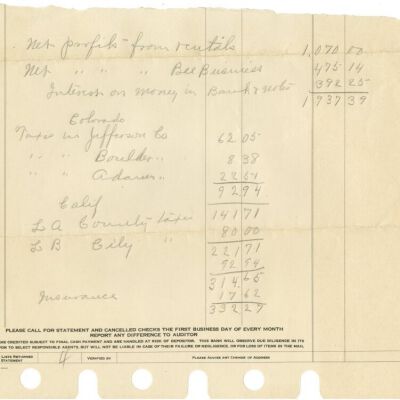 Net profits from rentals 1,070 00
Net " " " Bee Business 475 14
Interest on money in Bank & notes 392 25
1 937 39
Colorado
Taxes in Jefferson Co 62 05
" " Boulder " 8 38
" " Adams " 22 51
92 94
Calif
L A County taxes 141 71
L B City " 80 00
221 71
92 94
314 65
Insurance 17 62
332 27
PLEASE CALL FOR STATEMENT AND CANCELLED CHECKS THE FIRST BUSINESS DAY OF EVERY MONTH
REPORT ANY DIFFERENCE TO AUDITOR
ARE CREDITED SUBJECT TO FINAL CASH PAYMENT AND ARE HANDLED AT RISK OF DEPOSITOR. THIS BANK WILL OBSERVE DUE DILIGENCE IN ITS
TO SELECT RESPONSIBLE AGENTS, BUT WILL NOT BE LIABLE IN CASE OF THEIR FAILURE OR NEGLIGENCE, OR FOR LOSS OF ITEMS IN THE MAIL
LISTS RETURNED STATEMENT 4 VERIFIED BY PLEASE ADVISE ANY CHANGE OF ADDRESS